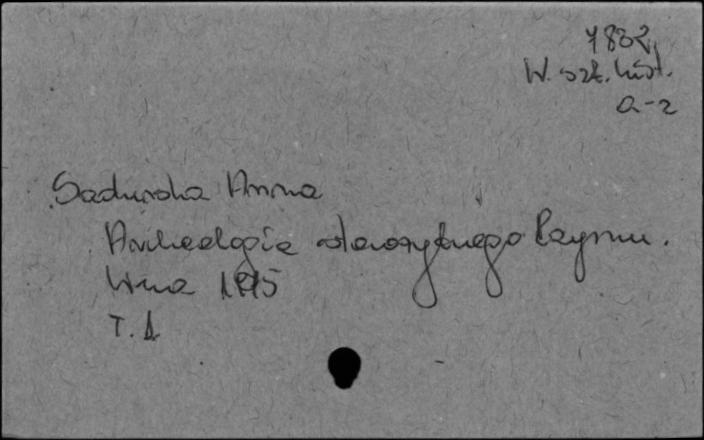 7832
W. szt. hist.
a-z
Sadurska Anna
Archeologia starożytnego Rzymu.
W-wa 1975
T. 1